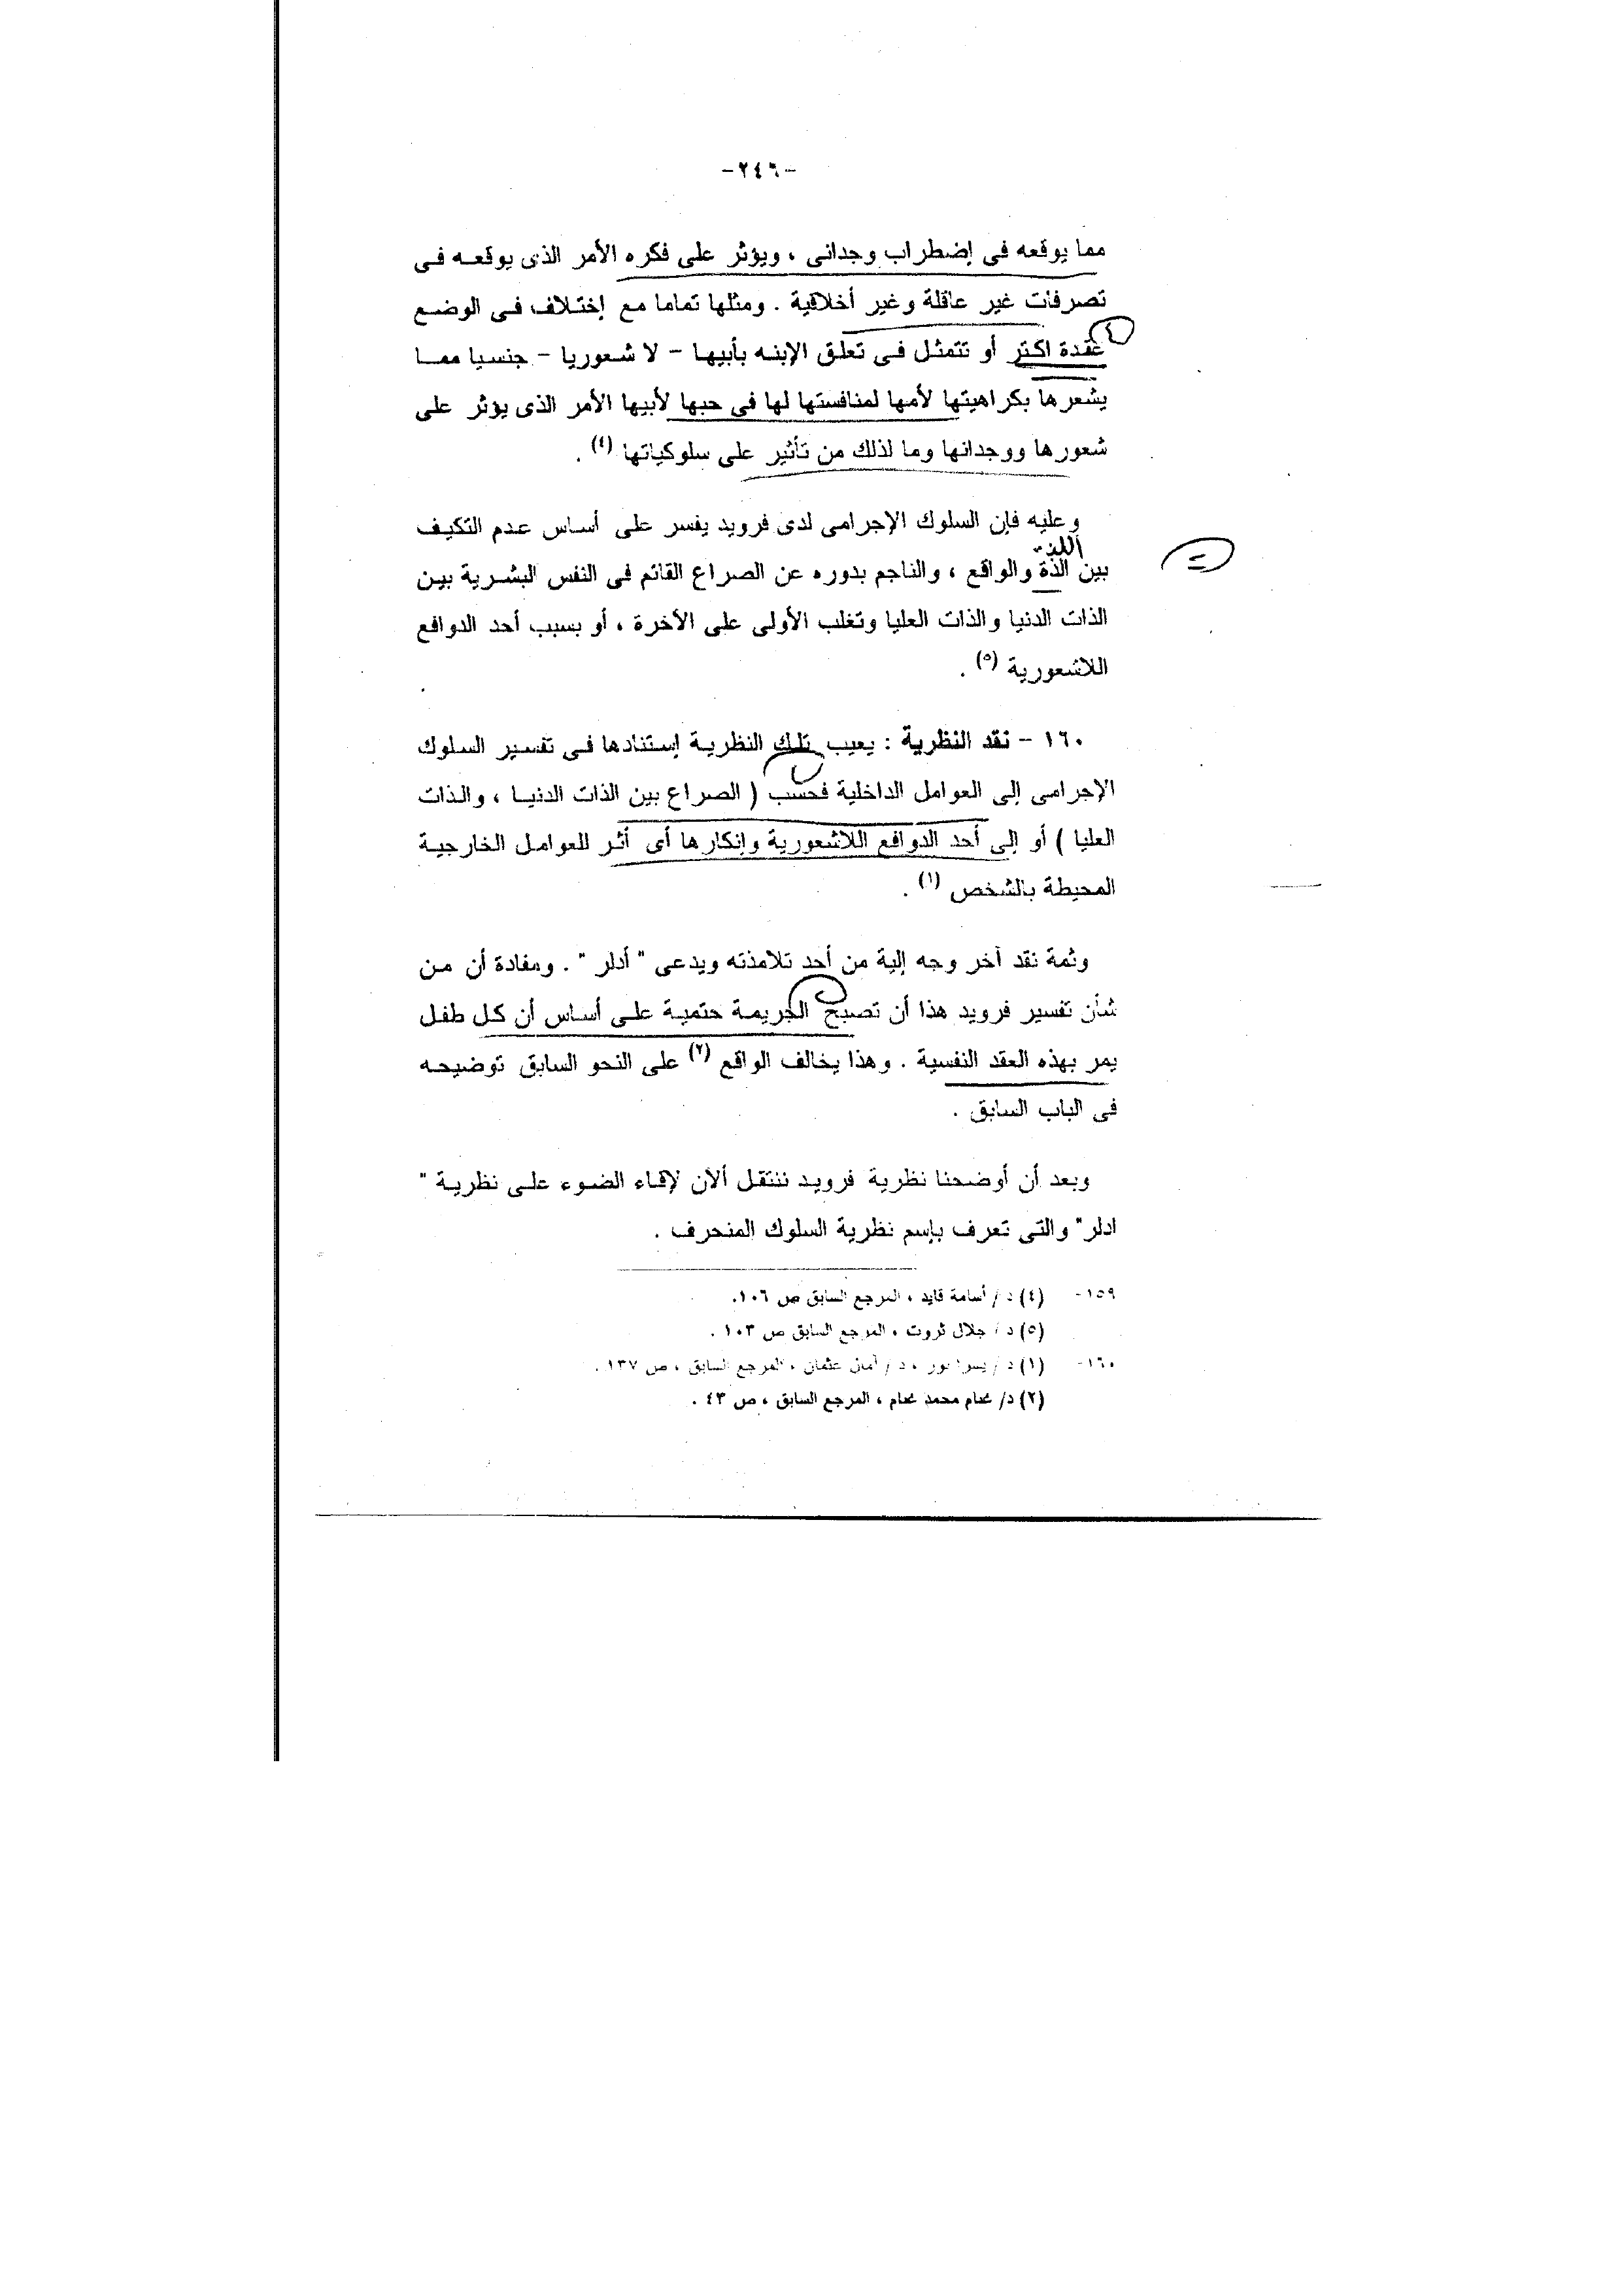 -٢٤٦-
مما يوقعه فى إضطراب وجدانى ، ويؤثر على فكره الأمر الذى يوقعه فى
تصرفات غير عاقلة وغير أخلاقية . ومثلها تماما مع إختلاف فى الوضع
عقدة اكتر أو تتمثل فى تعلق الإبنه بأبيها - لا شعوريا - جنسيا مما
يشعرها بكراهيتها لأمها لمنافستها لها فى حبها لأبيها الأمر الذى يؤثر على
شعورها ووجدانها وما لذلك من تأثير على سلوكياتها (٤) .
وعليه فإن السلوك الإجرامى لدى فرويد يفسر على أساس عدم التكيف
اللذة
بين الذة والواقع ، والناجم بدوره عن الصراع القائم فى النفس البشرية بين
الذات الدنيا والذات العليا وتغلب الأولى على الأخرة ، أو بسبب أحد الدوافع
اللاشعورية (٥) .
١٦٠ - نقد النظرية : يعيب تلك النظرية إستنادها فى تفسير السلوك
الإجرامى إلى العوامل الداخلية فحسب ( الصراع بين الذات الدنيا ، والذات
العليا ) أو إلى أحد الدوافع اللاشعورية وإنكارها أى أثر للعوامل الخارجية
المحيطة بالشخص (١) .
وثمة نقد آخر وجه إلية من أحد تلامذته ويدعى " أدلر " . ومفادة أن من
شأن تفسير فرويد هذا أن تصبح الجريمة حتمية على أساس أن كل طفل
يمر بهذه العقد النفسية . وهذا يخالف الواقع (٢) على النحو السابق توضيحه
فى الباب السابق .
وبعد أن أوضحنا نظرية فرويد ننتقل الآن لإقاء الضوء على نظرية "
ادلر" والتى تعرف بإسم نظرية السلوك المنحرف .
١٥٩- (٤) د / أسامة قايد ، المرجع السابق ص ١٠٦.
(٥) د / جلال ثروت ، المرجع السابق ص ١٠٣ .
١٦٠- (١) د / يسر نور ، د / آمال عثمان ، المرجع السابق ، ص ١٣٧ .
(٢) د/ محمد ، المرجع السابق ، ص ٤٣ .